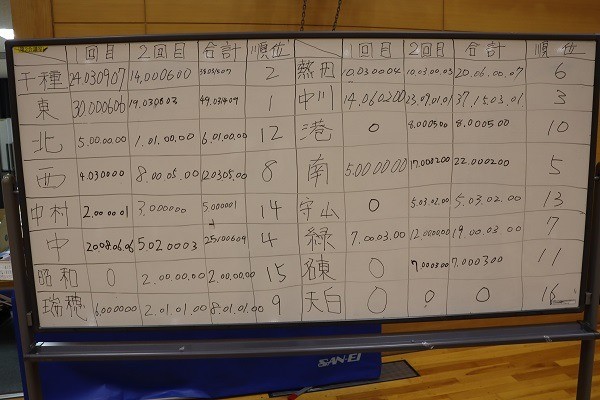 1回目 2回目 合計 順位 1回目 2回目 合計 順位
千種 24.030907 14.000600 2 熱田 10.030004 10.03.00.03 20.06.00.07 6
東 30.000606 19.030803 49.031409 1 中川 14.060200 23.09.01.01 37.15.03.01 3
北 5.00.00.00 1.01.00.00 6.01.00.00 12 港 0 8.000500 8.000500 10
西 4.030000 8.00.05.00 12.0305.00 8 南 5.000000 17.000200 22.000200 5
中村 2.000001 3.000000 5.000001 14 守山 0 5.03.02.00 5.03.02.00 13
中 20.08.06.06 5.020003 25.100609 4 緑 7.00.03.00 12.000000 19.00.03.00 7
昭和 0 2.00.00.00 2.00.00.00 15 名東 0 7.000300 7.000300 11
瑞穂 6.000000 2.01.01.00 8.01.01.00 9 天白 0 0 0 16
SAN-EI